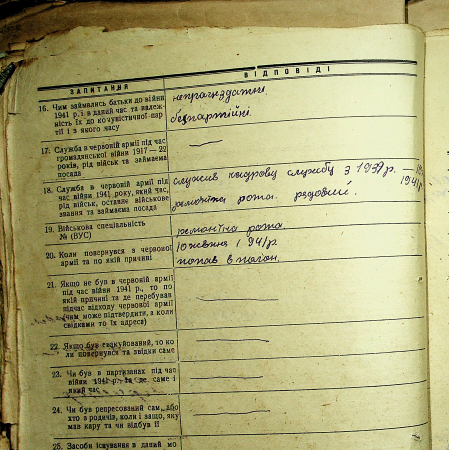 ЗАПИТАННЯ
ВІДПОВІДІ
16. Чим займались батьки до війни
1941 р. і в даний час та належ-
ність їх до комуністичної пар-
тії і з якого часу
непрацездатні.
безпартійні.
17. Служба в червоній армії під час
громадянської війни 1917—22
років, рід військ та займаема
посада
18. Служба в червоній армії під
час війни 1941 року, який час,
рід військ, останнє військове
звання та займаема посада
служив кадрову службу з 1939 р. —
1941 р.
ремонтна рота. рядовий.
19. Військова спеціальність
№ (ВУС)
ремонтна рота
20. Коли повернувся з червоної
армії та по якій причині
10 жовтня 1941 р
попав в полон.
21. Якщо не був в червоній армії
під час війни 1941 р., то по
якій причині та де перебував
під час відходу червоної армії
(чим може підтвердити, а коли
свідками то їх адреса)
22. Якщо був евакуйований, то ко-
ли повернувся та звідки саме
23. Чи був в партизанах під час
війни 1941 р. та де саме і
який час
24. Чи був репресований сам, або
хто в родичів, коли і защо, яку
мав кару та чи відбув її
25. Засоби існування в даний мо